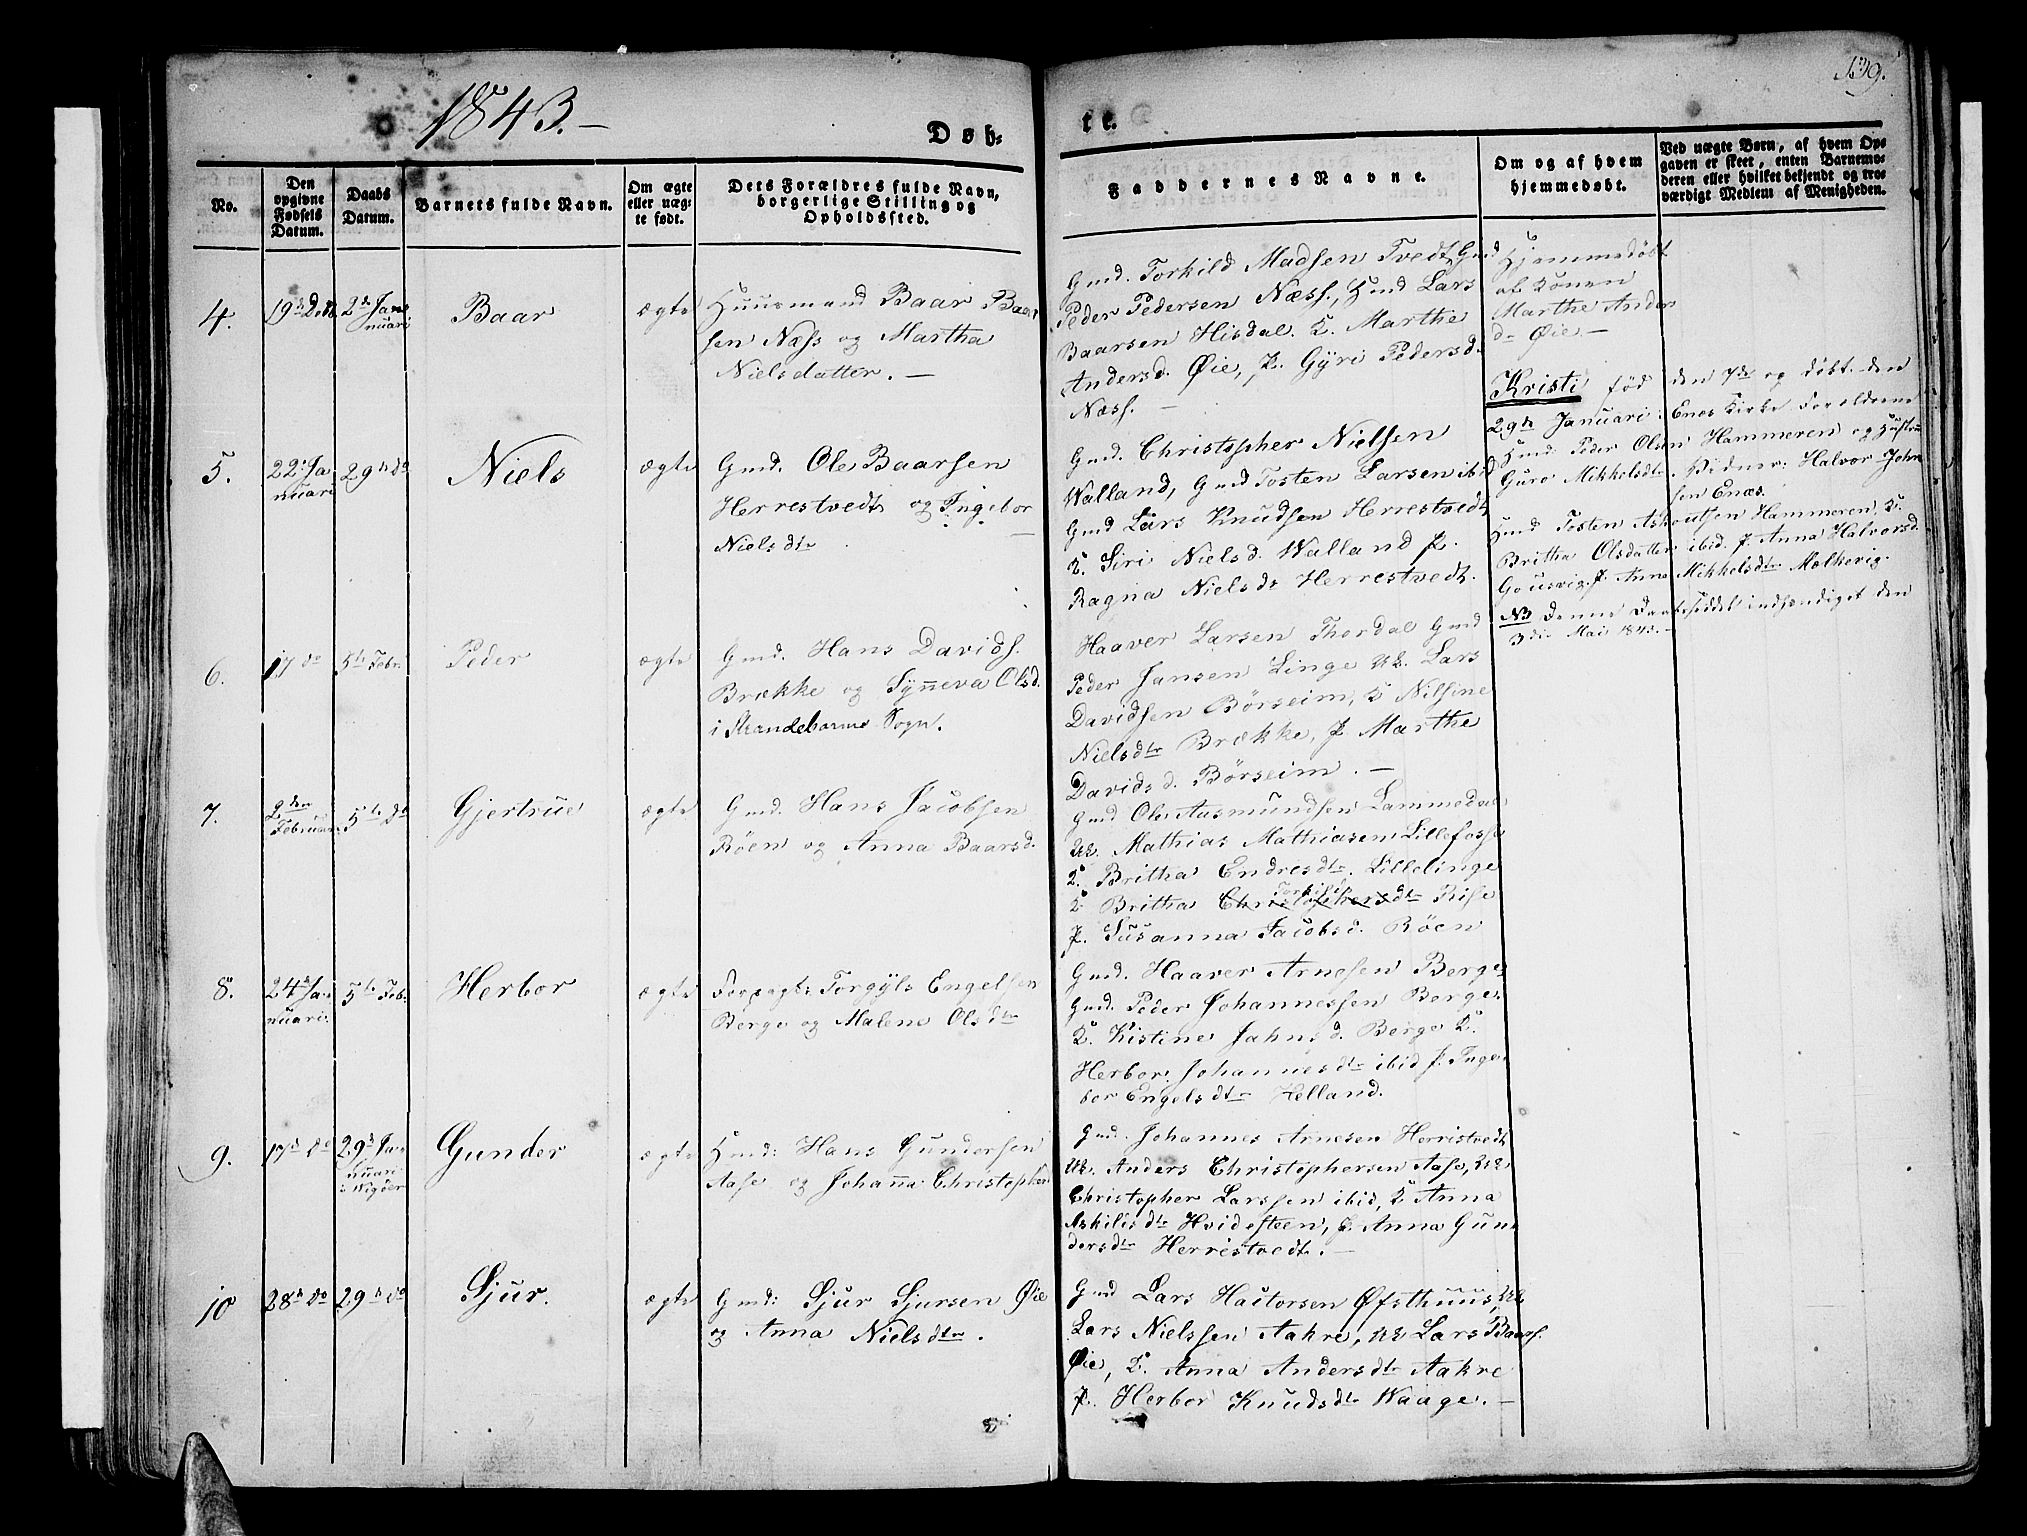 1843.
139.
Døb-
te.
No.
Den opgivne Fødsels Datum.
Daabs Datum.
Barnets fulde Navn.
Om ægte eller uægte født.
Dets Forældres fulde Navn, borgerlige Stilling og Opholdssted.
Faddernes Navne.
Om og af hvem hjemmedøbt.
Ved uægte Børn, af hvem Opgaven er skeet, enten Barnemoderen eller hvilket bekjendt og troværdigt Medlem af Menigheden.
4.
19de Debr.
2de Januari
Baar
ægte
Huusmand Baar Baar
sen Næss og Martha
Nielsdatter. —
Gmd. Torkild Madsen Tvedt, Gmd
Peder Pedersen Næss., Hmd Lars
Baarsen Hisdal. K. Marthe
Andersd. Øie, P. Gyri Pedersd.
Næss. —
Hjemmedøbt
af Konen
Marthe Anders
d. Øie —
5.
22. Ja
nuari
29de do
Niels
ægte
Gmd. Ole Baarsen
Herrestvedt og Ingebor
Nielsdtr
Gmd. Christopher Nielsen
Walland, Gmd Tosten Larsen ibid
Gmd Lars Knudsen Herrestvedt
K. Siri Nielsd. Walland P.
Ragna Nielsdr Herrestvedt.
Kristi fød den 7de og døbt den
29de Januari i Enes Kirke Foreldrene
Hmd Peder Olsen Hammeren og Hustru
Guro Mikkelsdtr. Vidner: Halvor John
sen Enæs.
Hmd Tosten Hammeren, K.
Britha Olsdatter ibid. P. Anna Halvorsd.
P. Anna Mikkelsdtr
NB Denne Daabseddel indsendiget den
3die Mai 1843. —
6.
17 do
5te Febr.
Peder
ægte
Gmd. Hans Davids.
Brække og Synneva Olsd.
i Strandebarms Sogn.
Haaver Larsen Thordal Gmd
Peder Jansen Linge Uk. Lars
Davidsen Børseim, K Nilsine
Nielsdtr Brække, P Marthe
Davidsd. Børseim. —
7.
2den
Februari
5te do
Gjertrue
ægte
Gmd. Hans Jacobsen
Røen og Anna Baarsd.
Gmd Ole Aasmundsen Lammedal
Uk. Mathias Mathiasen Lillefosse
K. Britha Endresdtr. Lillelinge
Torkild
K Britha Christophersdtr Rise
P. Susanna Jacobsd. Røen
8.
24de Ja
nuari.
5te Feb.
Herbor
ægte
Forpagt: Torgyls Engelsen
Berge og Malene Olsdtr
Gmd. Haaver Arnesen Berge
Gmd. Peder Johannessen Berge
K. Kistine Jahnsd. Berge K.
Herbor Johannesdtr ibid P. Inge
bor Engelsdtr Helland.
9.
17de do
29de Ja
nuari
i Wigøer
Gunder
ægte
Hmd: Hans Gundersen
Aase og Johanna Christopher
Gmd. Johannes Arnesen Herristvedt
Uk. Anders Christophersen Aase, Uk.
Christopher Larssen ibid, K. Anna
Askildsdtr Hvidesteen, P. Anna Gun
dersdtr Herristvedt. —
10
28de do
29de do
Sjur.
ægte
Gmd: Sjur Sjursen Øie
og Anna Nielsdtr.
Gmd Lars Hactorsen Øfsthuus, Uk
Lars Nielssen Aakre, Uk Lars Baars.
Øie, K. Anna Andersdtr Aakre
P. Herbor Knudsdtr Waage. —